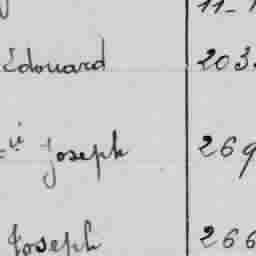 Edouard 203
Joseph 269
Joseph 266